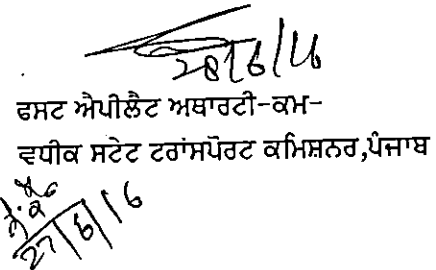 28/6/16
ਫਸਟ ਐਪੀਲੈਟ ਅਥਾਰਟੀ-ਕਮ-
ਵਧੀਕ ਸਟੇਟ ਟਰਾਂਸਪੋਰਟ ਕਮਿਸ਼ਨਰ,ਪੰਜਾਬ
27/6/16